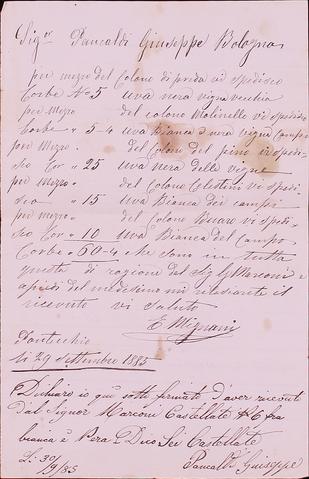 Sig.or Pancaldi Giuseppe Bologna
per mezzo del Colono di preda vi spedisco
Corbe No 5 uva nera vigna vecchia
per Mezzo del colono Molinello vi spedisco
Corbe " 5-4 uva Bianca e nera vigna Campo
per Mezzo del Colono del pino vi spedi-
sco Cor " 25 uva nera delle vigne
per Mezzo del Colono Celestini vi spedi
sco " 15 uva Bianca dei campi
per Mezzo del Colono vi spedi-
sco Cor " 10 uva Bianca del Campo
Corbe " 60-4 che sono in tutta
questa di ragione del Sig G Marconi e
del medesimo mi rilasciante il
ricevuto vi saluto
E. Mignani
Pontecchio
li 29 Settembre 1885
Dichiaro io qui sotto firmato d'aver ricevuto
dal Signor Marconi Castellate No 6 fra
bianca e Nera Dico Sei Castellate
L. 30/9/85 Pancaldi Guiseppe